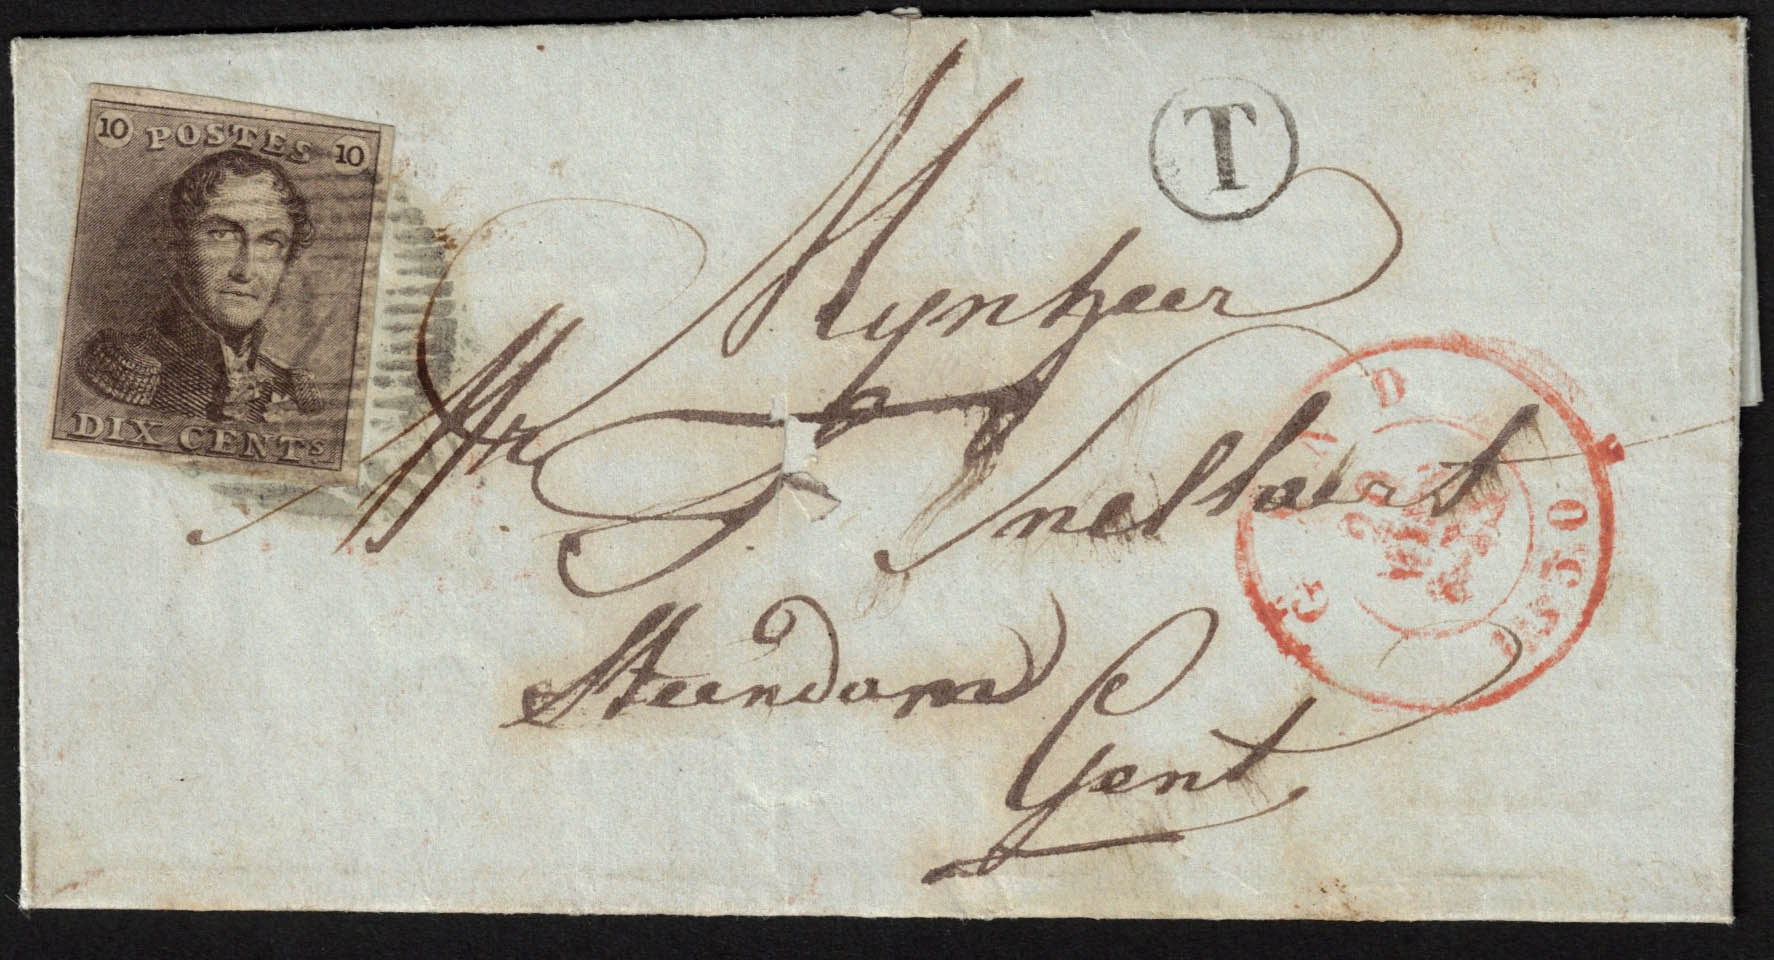 10 POSTES 10
DIX CENTS
T
Mynheer
Fr Snellaert
Steendam
Gent
GAND
1850